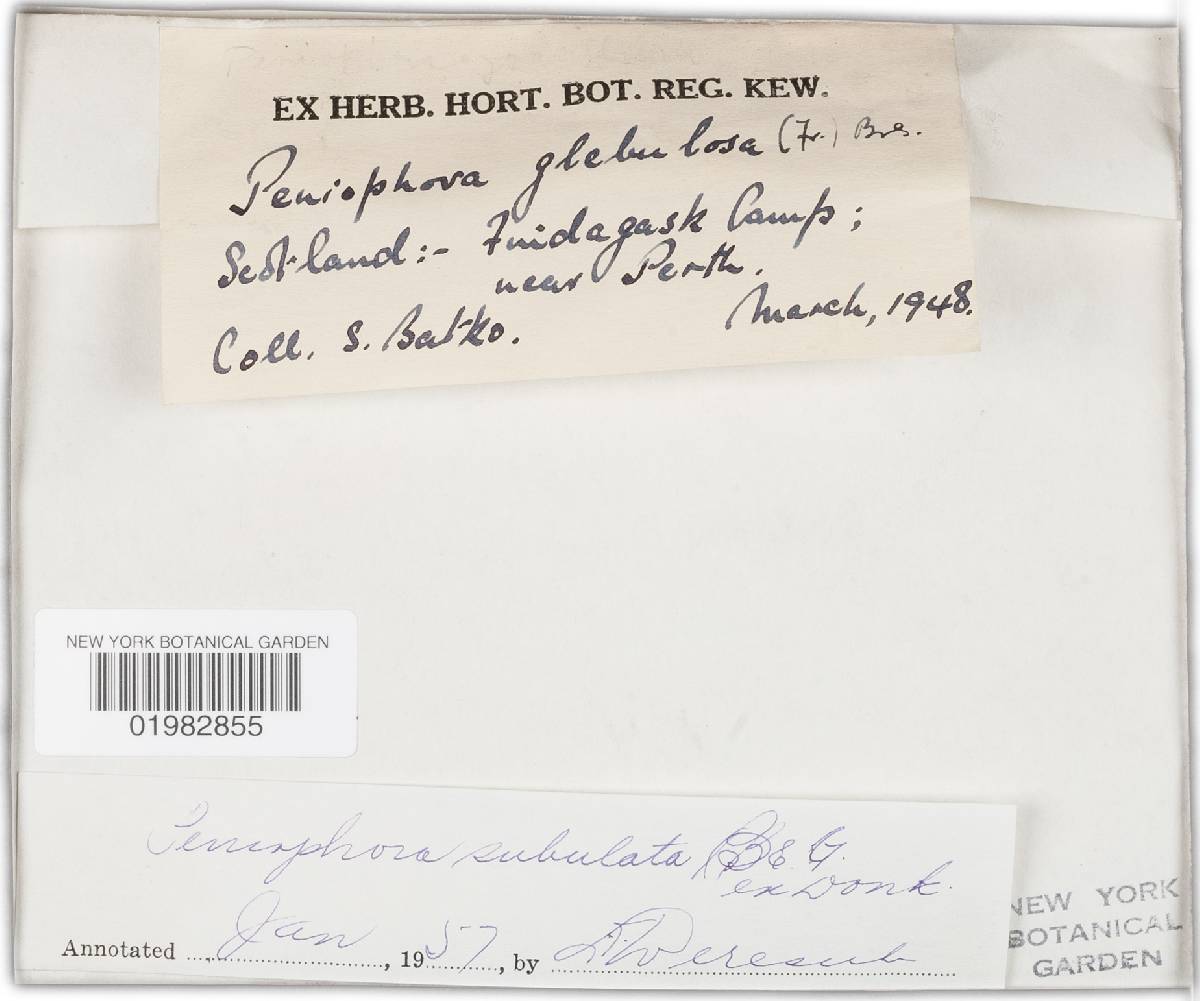 EX HERB. HORT. BOT. REG. KEW.
Peniophora glebulosa (Fr.) Bres.
Scotland:- Findagask Camp;
near Perth.
Coll. S. Batko. March, 1948.
NEW YORK BOTANICAL GARDEN
01982855
Peniophora subulata B & G.
ex Donk.
Annotated Jan, 1957, by L. Weresub
NEW YORK
BOTANICAL
GARDEN